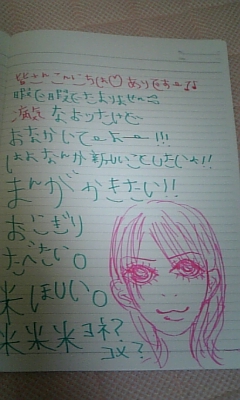 皆さんこんにちは♡ ありさです!!
暇で暇でたまりません
病気なおりたいけど
おなかいてーよー!!!
はよなんか新しいことしたいよ!!
まんががかきたい!!
おにぎり
たべたい。
米ほしい。
米米米ヨネ?
コメ?